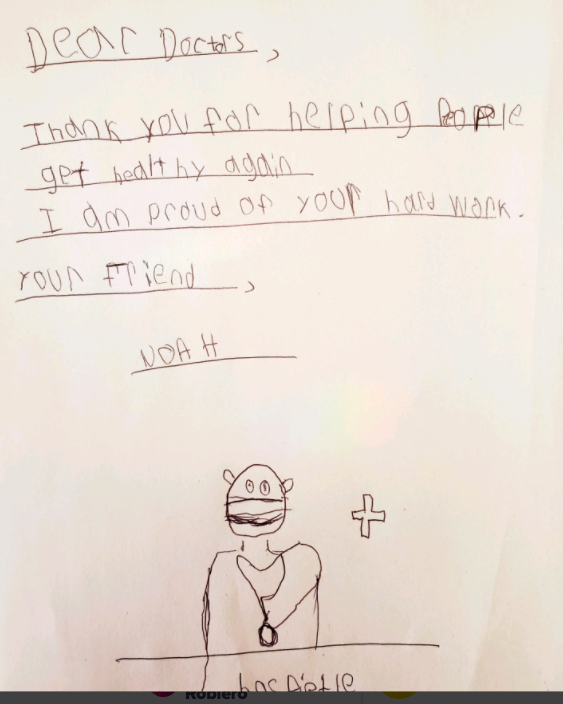 Dear Doctors,
Thank you for helping People
get healthy again
I am proud of your hard work.
Your Friend,
NOAH
hospitle
Robiero